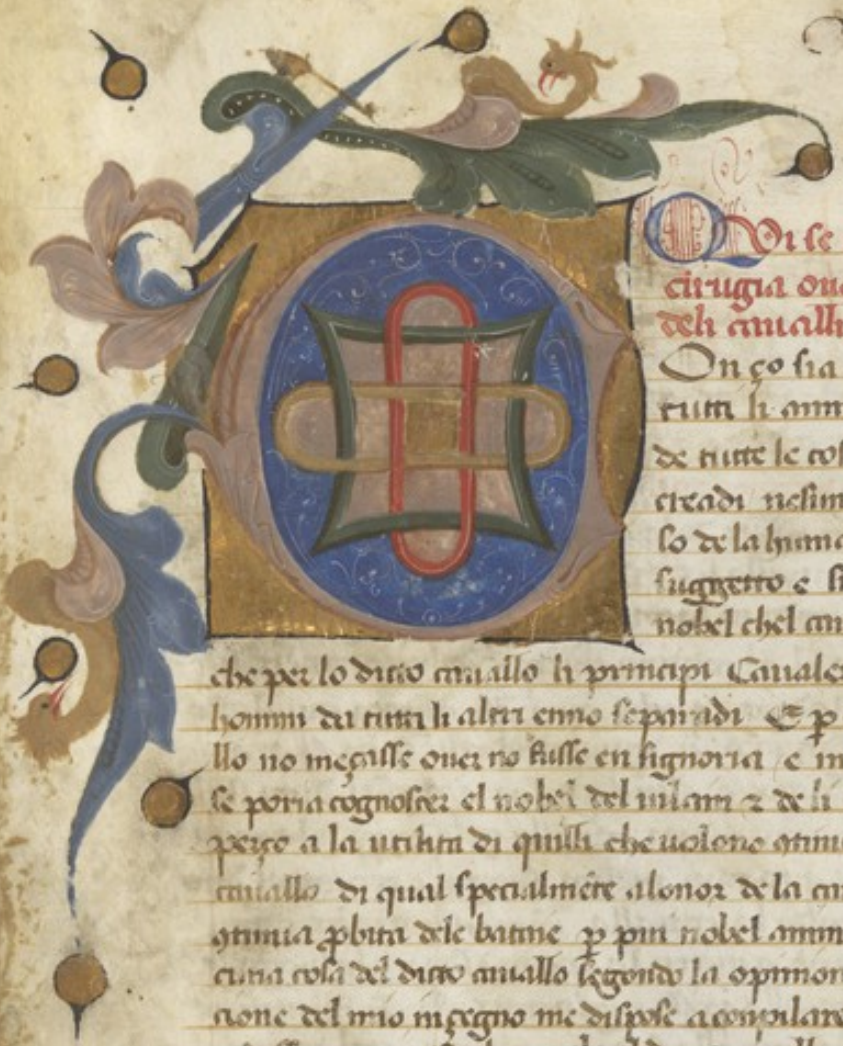 Qui se
cirugia oue
deli caualli
Con ço sia
tutti li anim
de tutte le cos
creadi nesun
so de la huma
suggetto e si
nobel chel cau
che per lo dicto cauallo li principi Caualer
homini da tutti li altri enno separadi E p
llo no meçasse ouer no fusse en signoria e in
se poria cognoscer el nobel del uilam z de li
perço a la utilita di quilli che uoleno
cauallo di qual specialmēte alonor de la
dele bataie p piu nobel anim
cuna cosa del dicto cauallo segondo la opinion
cione del mio ingegno me dispose a compilare